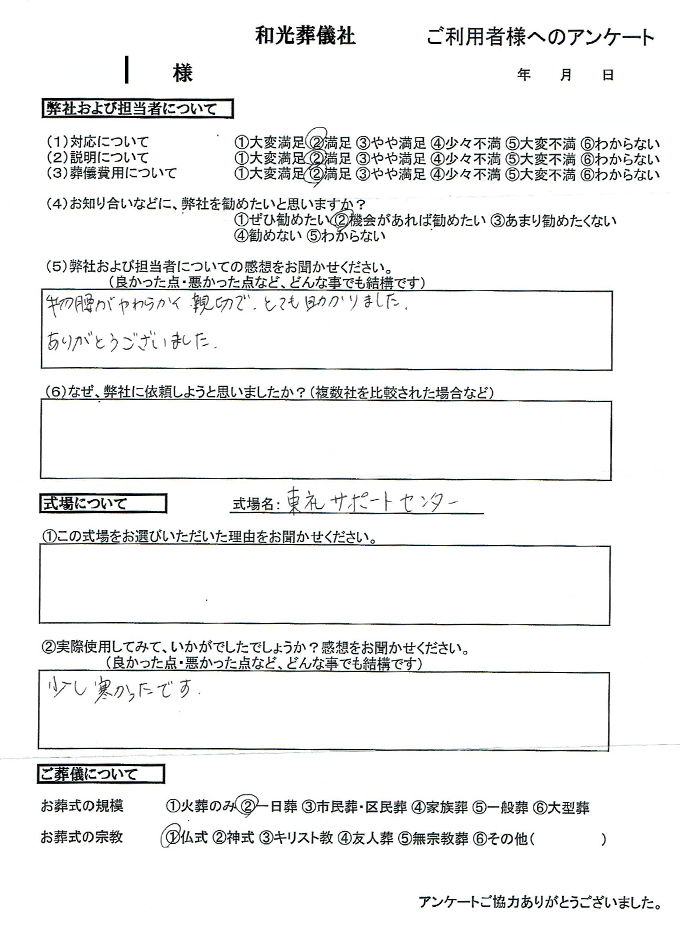 和光葬儀社 ご利用者様へのアンケート
様 年 月 日
弊社および担当者について
(1)対応について ①大変満足 ②満足 ③やや満足 ④少々不満 ⑤大変不満 ⑥わからない
(2)説明について ①大変満足 ②満足 ③やや満足 ④少々不満 ⑤大変不満 ⑥わからない
(3)葬儀費用について ①大変満足 ②満足 ③やや満足 ④少々不満 ⑤大変不満 ⑥わからない
(4)お知り合いなどに、弊社を勧めたいと思いますか?
①ぜひ勧めたい ②機会があれば勧めたい ③あまり勧めたくない
④勧めない ⑤わからない
(5)弊社および担当者についての感想をお聞かせください。
(良かった点・悪かった点など、どんな事でも結構です)
物腰がやわらかく親切で、とても助かりました。
ありがとうございました。
(6)なぜ、弊社に依頼しようと思いましたか?(複数社を比較された場合など)
式場について 式場名: 東礼サポートセンター
①この式場をお選びいただいた理由をお聞かせください。
②実際使用してみて、いかがでしたでしょうか?感想をお聞かせください。
(良かった点・悪かった点など、どんな事でも結構です)
少し寒かったです.
ご葬儀について
お葬式の規模 ①火葬のみ ②一日葬 ③市民葬・区民葬 ④家族葬 ⑤一般葬 ⑥大型葬
お葬式の宗教 ①仏式 ②神式 ③キリスト教 ④友人葬 ⑤無宗教葬 ⑥その他( )
アンケートご協力ありがとうございました。